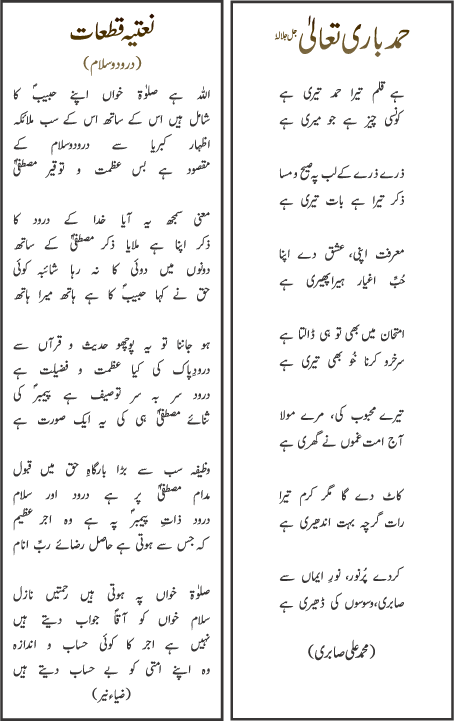 حمد باری تعالیٰ جل جلالہ
ہے قلم تیرا حمد تیری ہے
کونسی چیز ہے جو میری ہے
ذرے ذرے کے لب پہ صبح و مسا
ذکر تیرا ہے بات تیری ہے
معرفت اپنی، عشق دے اپنا
حُبِّ اغیار ہیرا پھیری ہے
امتحان میں بھی تو ہی ڈالتا ہے
سرخرو کرنا خُو بھی تیری ہے
تیرے محبوب کی، مرے مولا
آج امت غموں نے گھری ہے
کاٹ دے گا مگر کرم تیرا
رات گرچہ بہت اندھیری ہے
کردے پُرنور، نورِ ایماں سے
صابری، وسوسوں کی ڈھیری ہے
(محمد علی صابری)
نعتیہ قطعات
(درود و سلام)
اللہ ہے صلوٰۃ خواں اپنے حبیبؐ کا
شامل ہیں اس کے ساتھ اس کے سب ملائکہ
اظہار کبریا سے درودوسلام کے
مقصود ہے بس عظمت و توقیر مصطفیٰؐ
معنی سمجھ یہ آیا خدا کے درود کا
ذکر اپنا ہے ملایا ذکر مصطفیٰؐ کے ساتھ
دونوں میں دوئی کا نہ رہا شائبہ کوئی
حق نے کہا حبیبؐ کا ہے ہاتھ میرا ہاتھ
ہو جاننا تو یہ پوچھو حدیث و قرآں سے
درودِپاک کی کیا عظمت و فضیلت ہے
درود سر بہ سر توصیف ہے پیمبرؐ کی
ثنائے مصطفیٰؐ ہی کی یہ ایک صورت ہے
وظیفہ سب سے بڑا بارگاہِ حق میں قبول
مدام مصطفیٰؐ پر ہے درود اور سلام
درود ذاتِ پیمبرؐ پہ ہے وہ اجر عظیم
کہ جس سے ہوتی ہے حاصل رضائے ربِّ انام
صلوٰۃ خواں پہ ہوتی ہیں رحمتیں نازل
سلام خواں کو آقاؐ جواب دیتے ہیں
نہیں ہے اجر کا کوئی حساب و اندازہ
وہ اپنے امتی کو بے حساب دیتے ہیں
(ضیاء نیر)